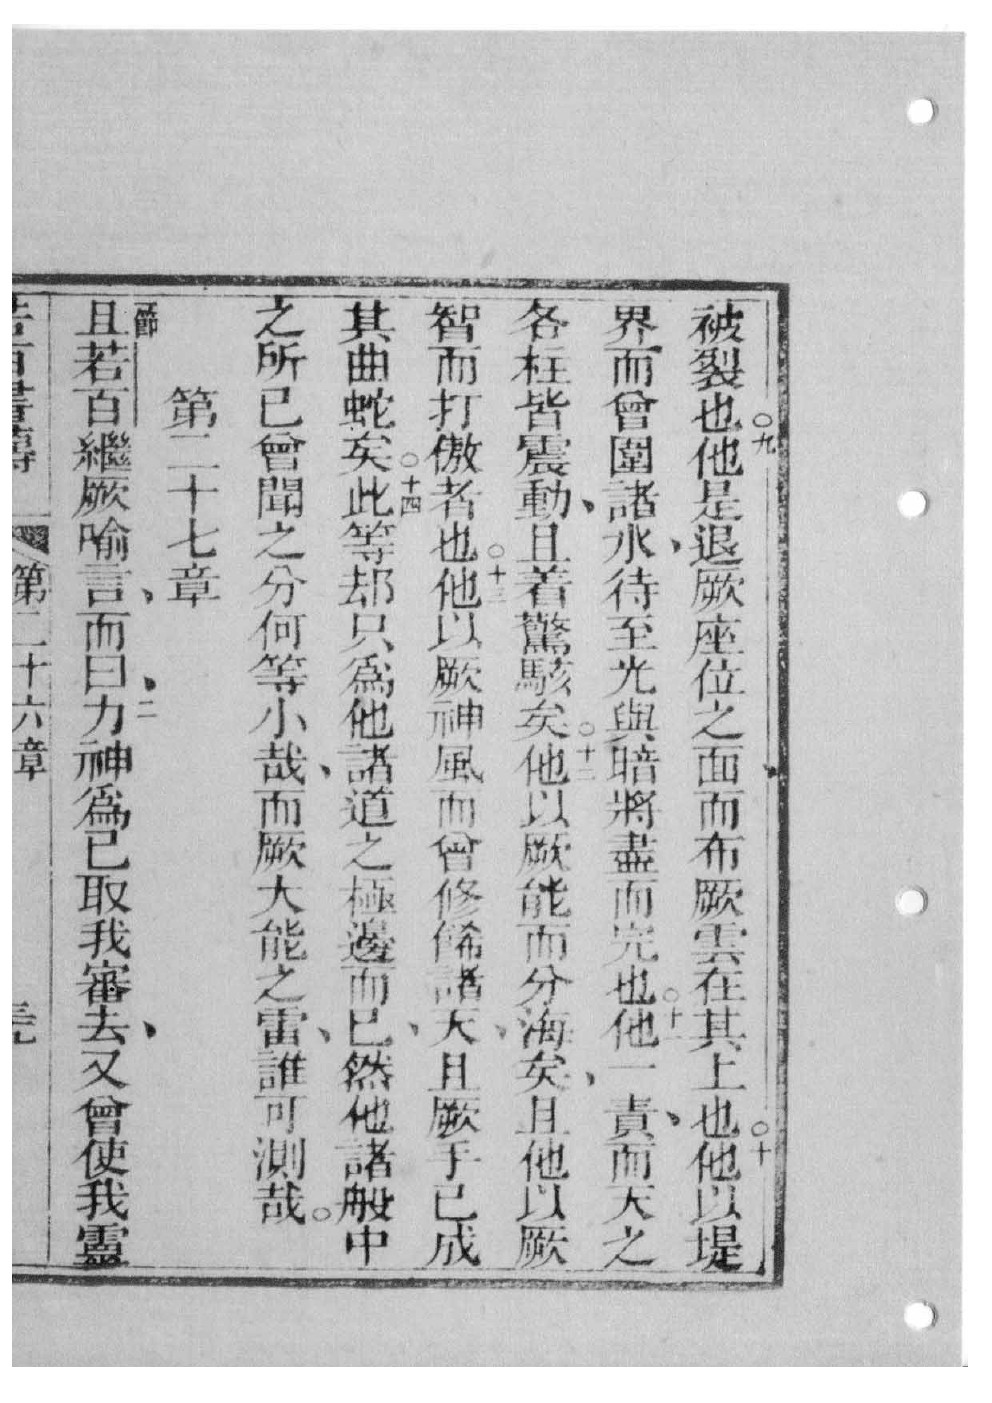 被裂也○九他是退厥座位之面而布厥雲在其上也○十他以堤
界而曾圍諸水、待至光與暗將盡而完也○十一他一責、而天之
各柱皆震動、且着驚駭矣○十二他以厥能而分海矣、且他以厥
智而打傲者也○十三他以厥神風而曾修俙諸天、且厥手已成
其曲蛇矣○十四此等却只為他諸道之極邊而已、然他諸般中
之所已曾聞之分何等小哉、而厥大能之雷、誰可測哉○
第二十七章
一節且若百繼厥喻言、而曰、二力神為已取我審去、又曾使我靈
若百書傳
第二十六章